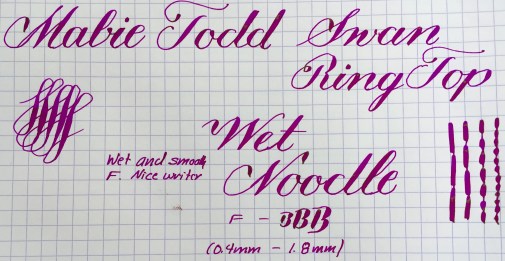 Mabie Todd Swan
Ring Top
Wet
Noodle
Wet and smooth
F. Nice writer
F - BBB
(0.4mm - 1.8mm)